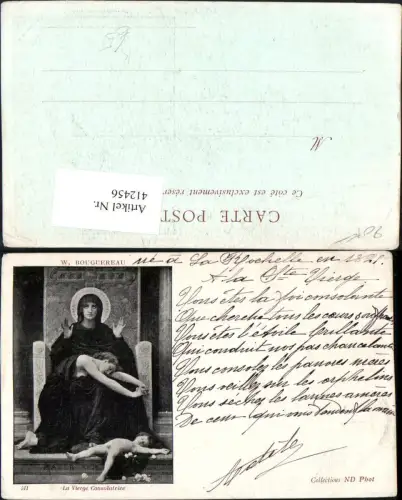 59
M
Ce côté est exclusivement réser
CARTE POST
Artikel Nr.
412456
W. BOUGUEREAU
né à La Rochelle en 1825
A la Ste Vierge
Vous êtes la foi consolante
Que cherche tous les cœurs
Vous êtes l'étoile brillante
Qui conduit nos pas chancelants
Vous consolez les pauvres mères
Vous veillez sur les orphelins
Vous séchez les larmes amères
De ceux qui vous tendent
111
La Vierge Consolatrice
Collections ND Phot